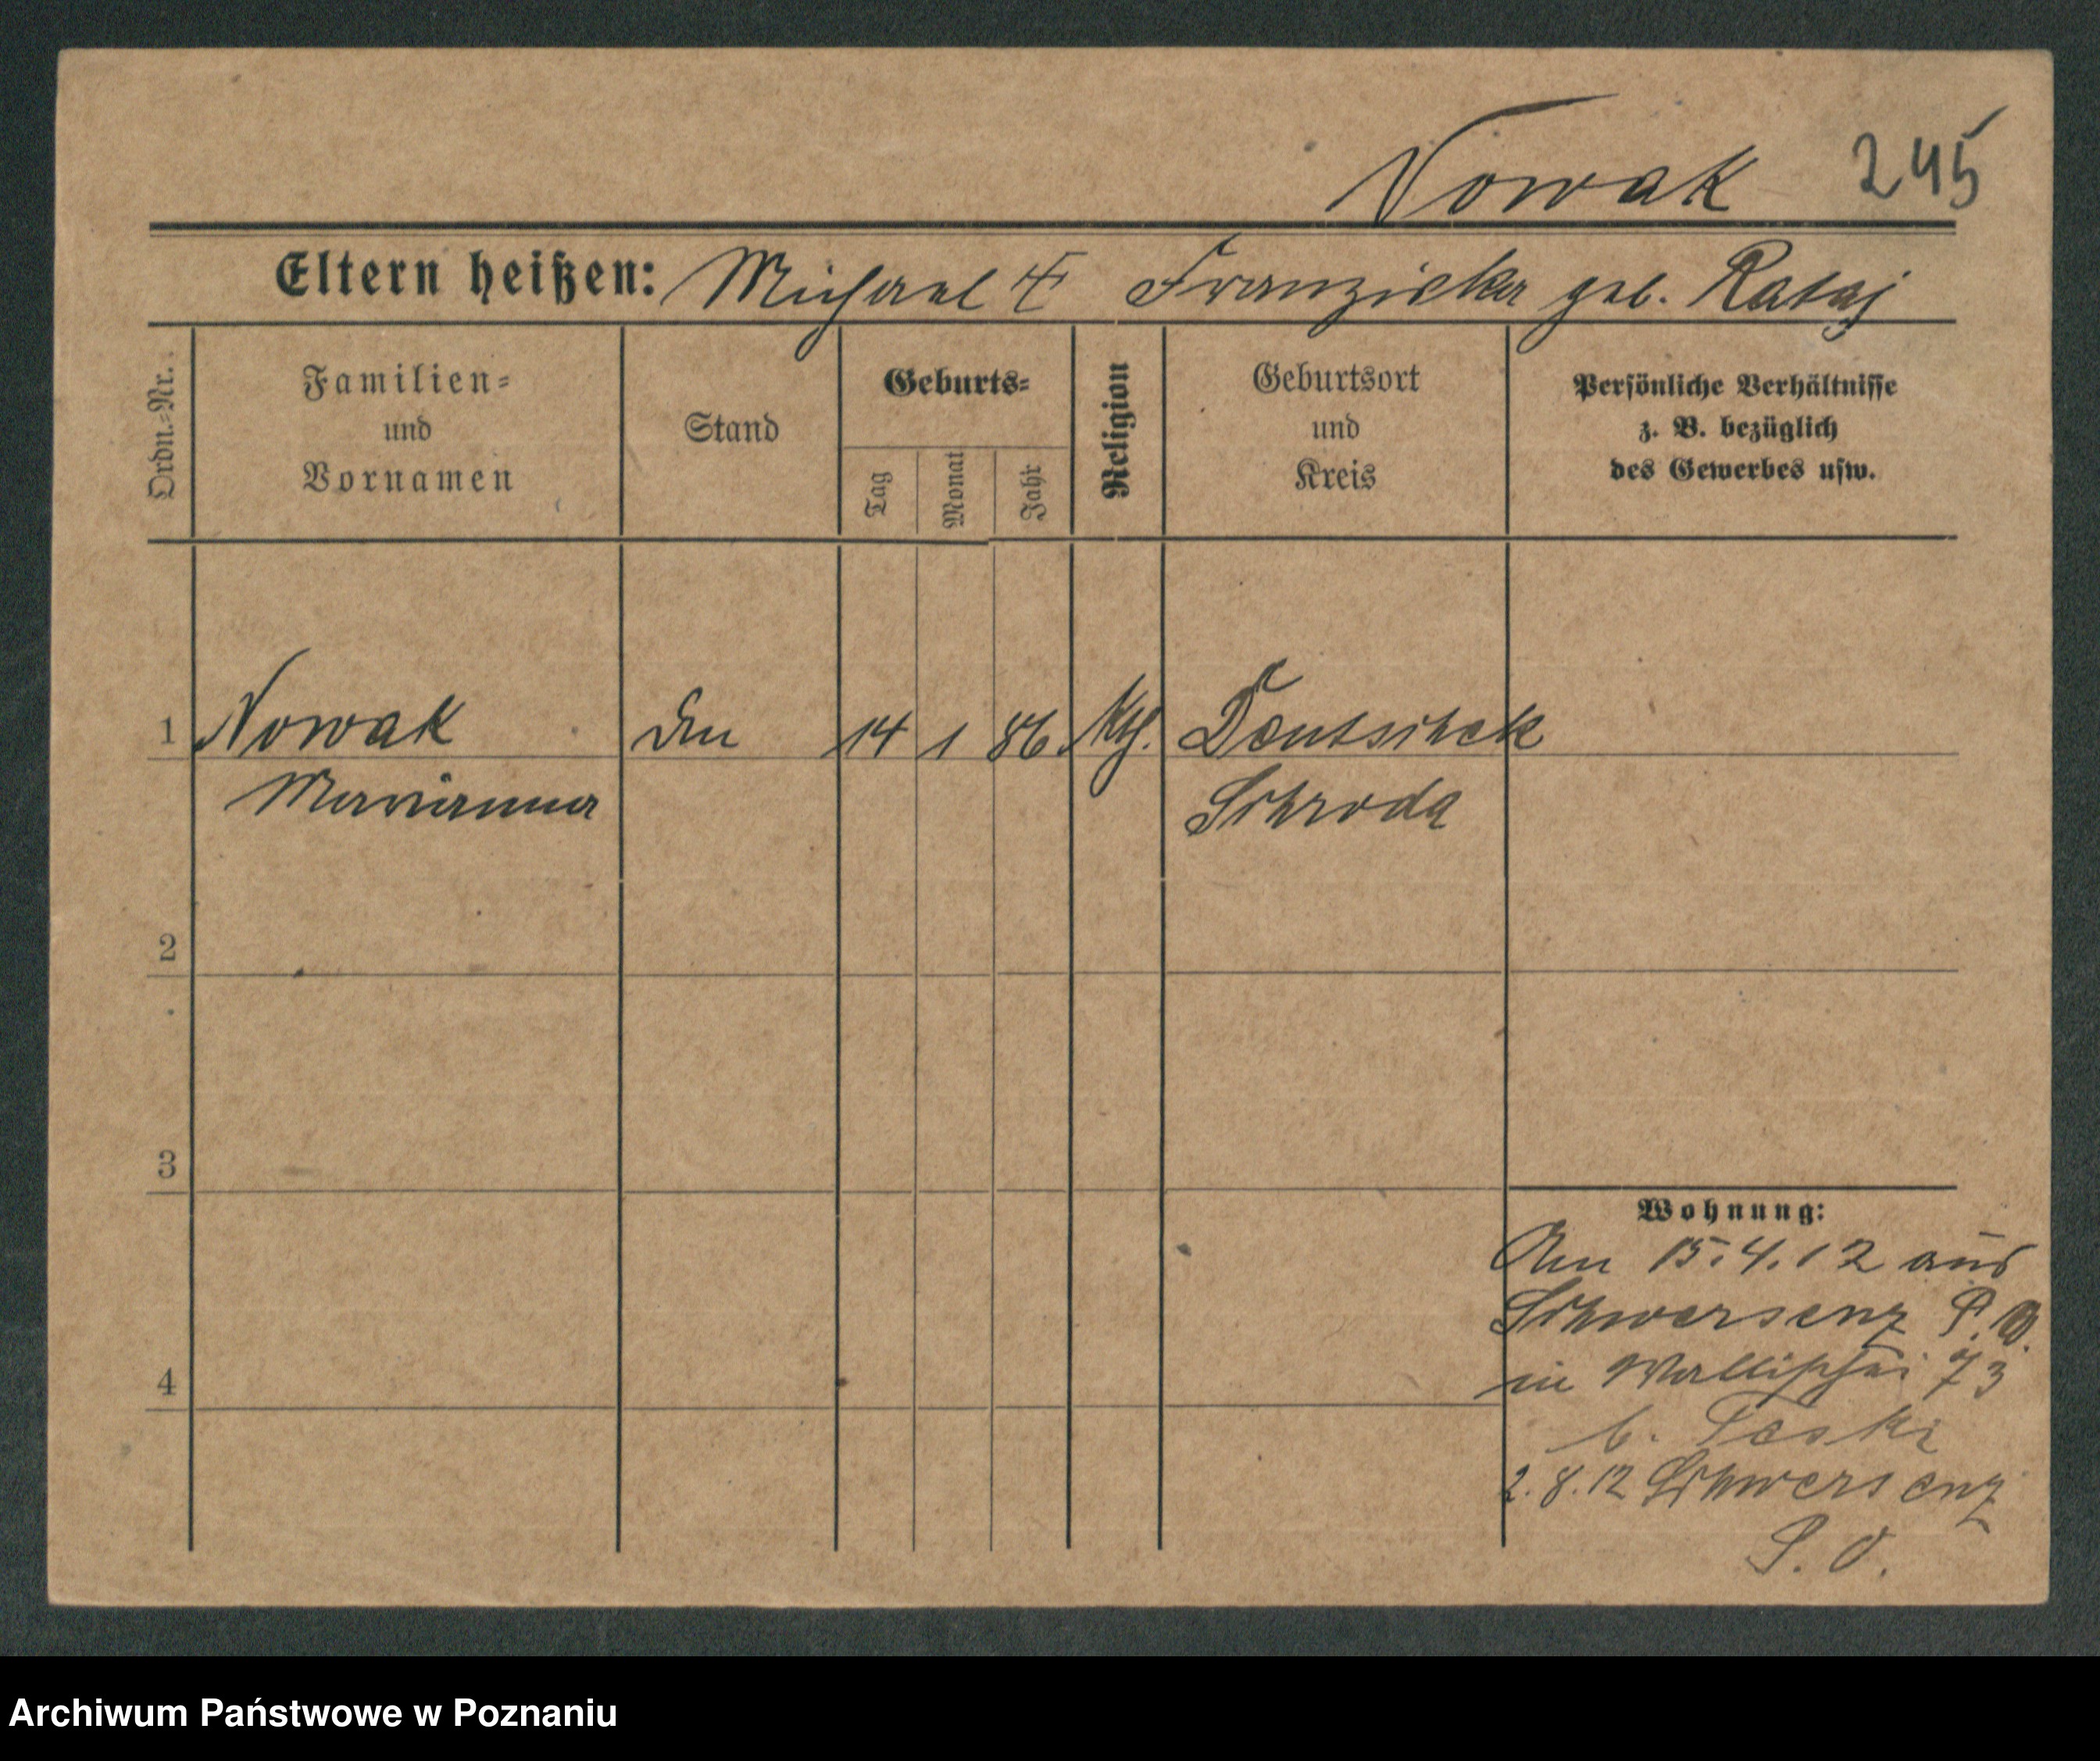 Nowak 245
Eltern heißen: Michael † Franziska geb. Rataj
Ordn.=Nr.
Familien=
und
Vornamen
Stand
Geburts=
Tag
Monat
Jahr
Religion
Geburtsort
und
Kreis
Persönliche Verhältnisse
z. B. bezüglich
des Gewerbes usw.
1 Nowak 14 1 86 Kth. Deutscheck
Marianna Schroda
2
3
4
Wohnung:
Am 15.4.12 aus
Schwersenz P. O.
in Wallischei 73
b. Teske
2.8.12 Schwersenz
P. O.
Archiwum Państwowe w Poznaniu